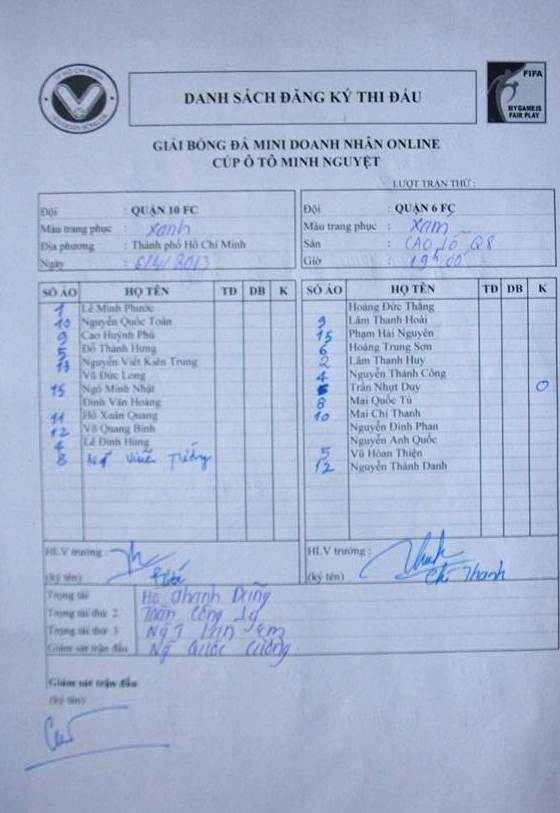 DANH SÁCH ĐĂNG KÝ THI ĐẤU
FIFA
MY GAME IS
FAIR PLAY
GIẢI BÓNG ĐÁ MINI DOANH NHÂN ONLINE
CÚP Ô TÔ MINH NGUYỆT
LƯỢT TRẬN THỨ :
Đội : QUẬN 10 FC
Màu trang phục : xanh
Địa phương : Thành phố Hồ Chí Minh
Ngày : 6/4/2013
Đội : QUẬN 6 FC
Màu trang phục : xám
Sân : CAO LỖ Q8
Giờ : 19h00
SỐ ÁO HỌ TÊN TĐ DB K
1 Lê Minh Phước
10 Nguyễn Quốc Toàn
9 Cao Huỳnh Phú
5 Đỗ Thành Hưng
13 Nguyễn Viết Kiên Trung
Vũ Đức Long
15 Ngô Minh Nhật
Đinh Văn Hoàng
11 Hồ Xuân Quang
12 Võ Quang Bình
4 Lê Đình Hùng
8
SỐ ÁO HỌ TÊN TĐ DB K
Hoàng Đức Thắng
9 Lâm Thanh Hoài
15 Phạm Hải Nguyên
6 Hoàng Trung Sơn
2 Lâm Thanh Huy
4 Nguyễn Thành Công
Trần Nhựt Duy O
8 Mai Quốc Tú
10 Mai Chí Thanh
Nguyễn Đình Phan
Nguyễn Anh Quốc
5 Vũ Hoàn Thiện
12 Nguyễn Thành Danh
HLV trưởng :
(ký tên)
HLV trưởng :
(ký tên) Chí Thanh
Trọng tài Hồ Thanh Dũng
Trọng tài thứ 2 Trần Công
Trọng tài thứ 3
Giám sát trận đấu Ng Quốc Cường
Giám sát trận đấu
(ký tên)